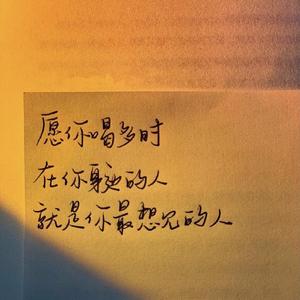 愿你喝多时
在你身边的人
就是你最想见的人